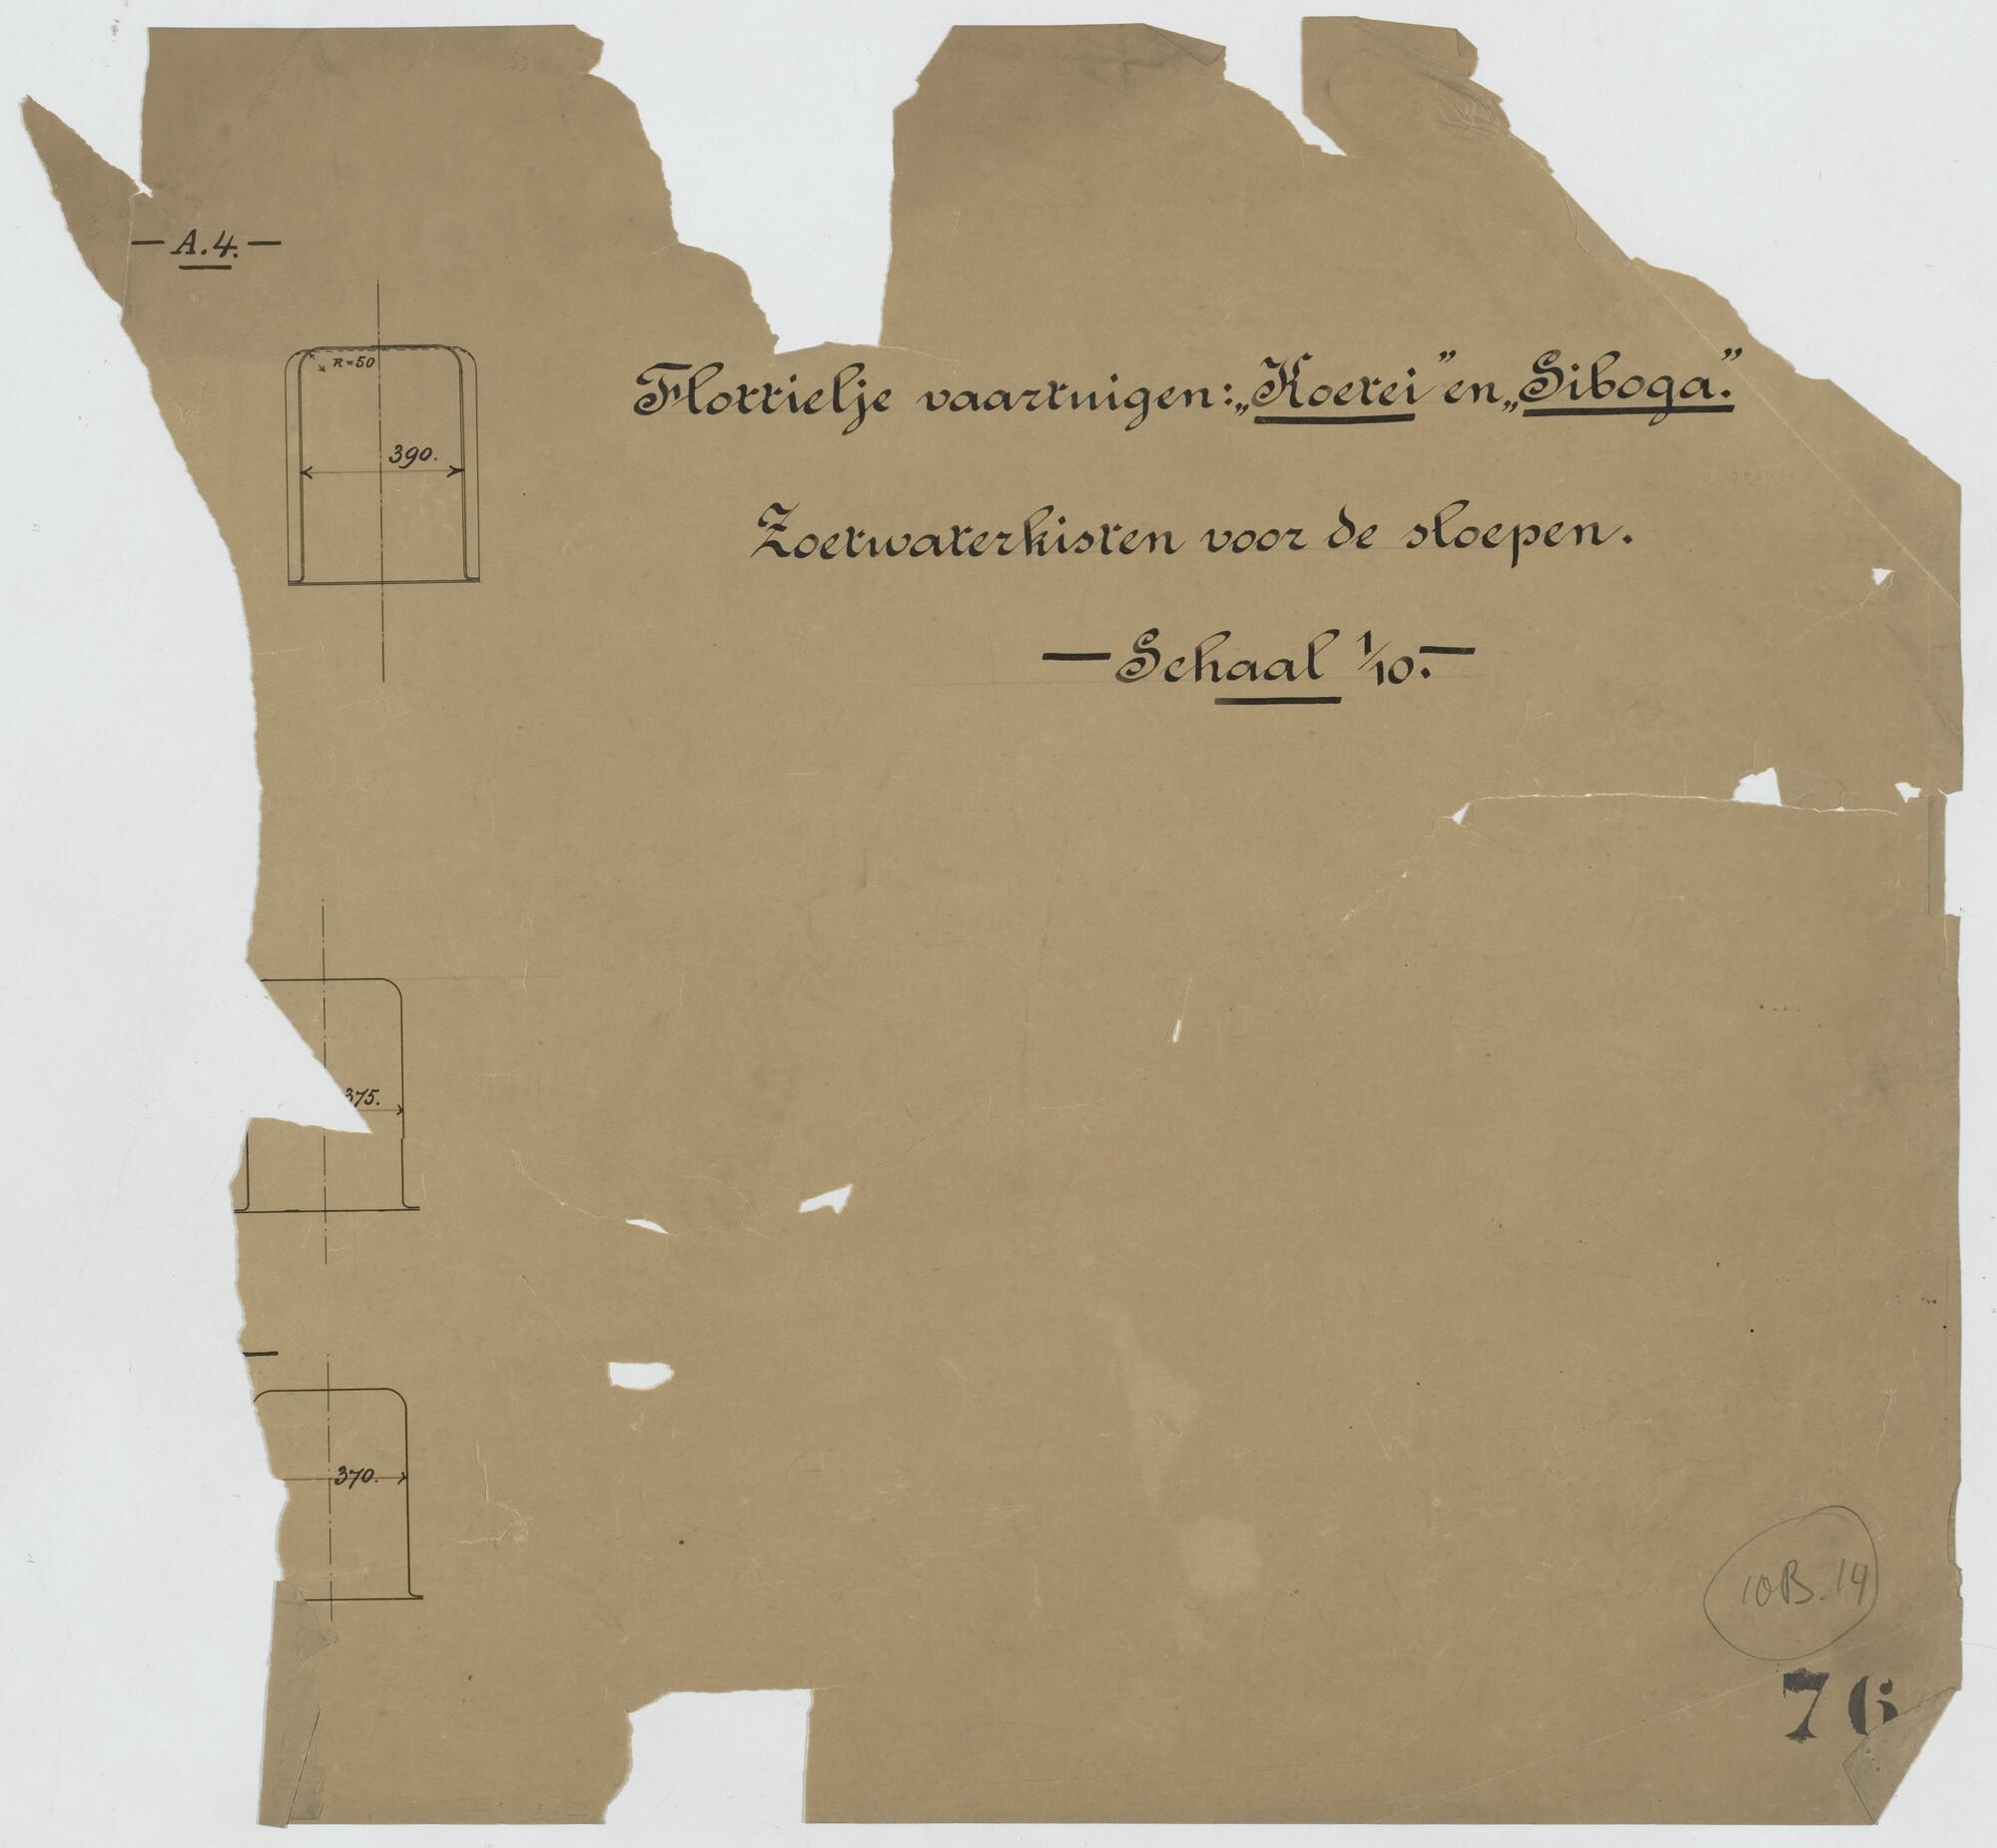 — A.4. —
R=50
390.
Flottielje vaartuigen: „Koetei” en „Siboga.”
Zoetwaterkisten voor de sloepen.
— Schaal 1/10. —
375.
370.
10B.14
76